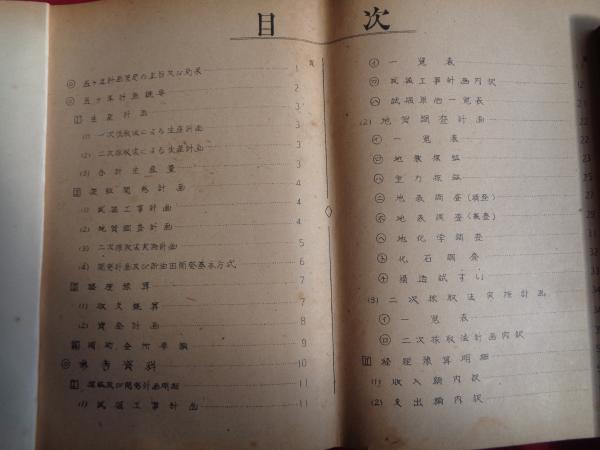 目次
頁
◎ 五ヶ年計画変更の主旨及び効果 1
◎ 五ヶ年計画概要 2
I 生産計画 3
(1) 一次採取法による生産計画 3
(2) 二次採取法による生産計画 3
(3) 合計生産量 3
II 探鉱開発計画 4
(1) 試掘工事計画 4
(2) 地質調査計画 4
(3) 二次採取法実施計画 5
(4) 開発計画及び新油田開発基本方式 6
III 経理予算 7
(1) 収支概算 7
(2) 資金計画 8
IV 9
◎ 参考資料 10
I 探鉱及び開発計画明細 11
(1) 試掘工事計画 11
㋑ 一覧表
㋺ 試掘工事計画内訳
㋩ 試掘単価一覧表
(2) 地質調査計画
㋑ 一覧表
㋺ 地震探鉱
㋩ 重力探鉱
㋥ 地表調査(精査)
㋭ 地表調査(概査)
㋬ 地化学調査
㋣ 化石調査
㋠ 構造試すい
(3) 二次採取法実施計画
㋑ 一覧表
㋺ 二次採取法計画内訳
II 経理予算明細
(1) 収入額内訳
(2) 支出額内訳